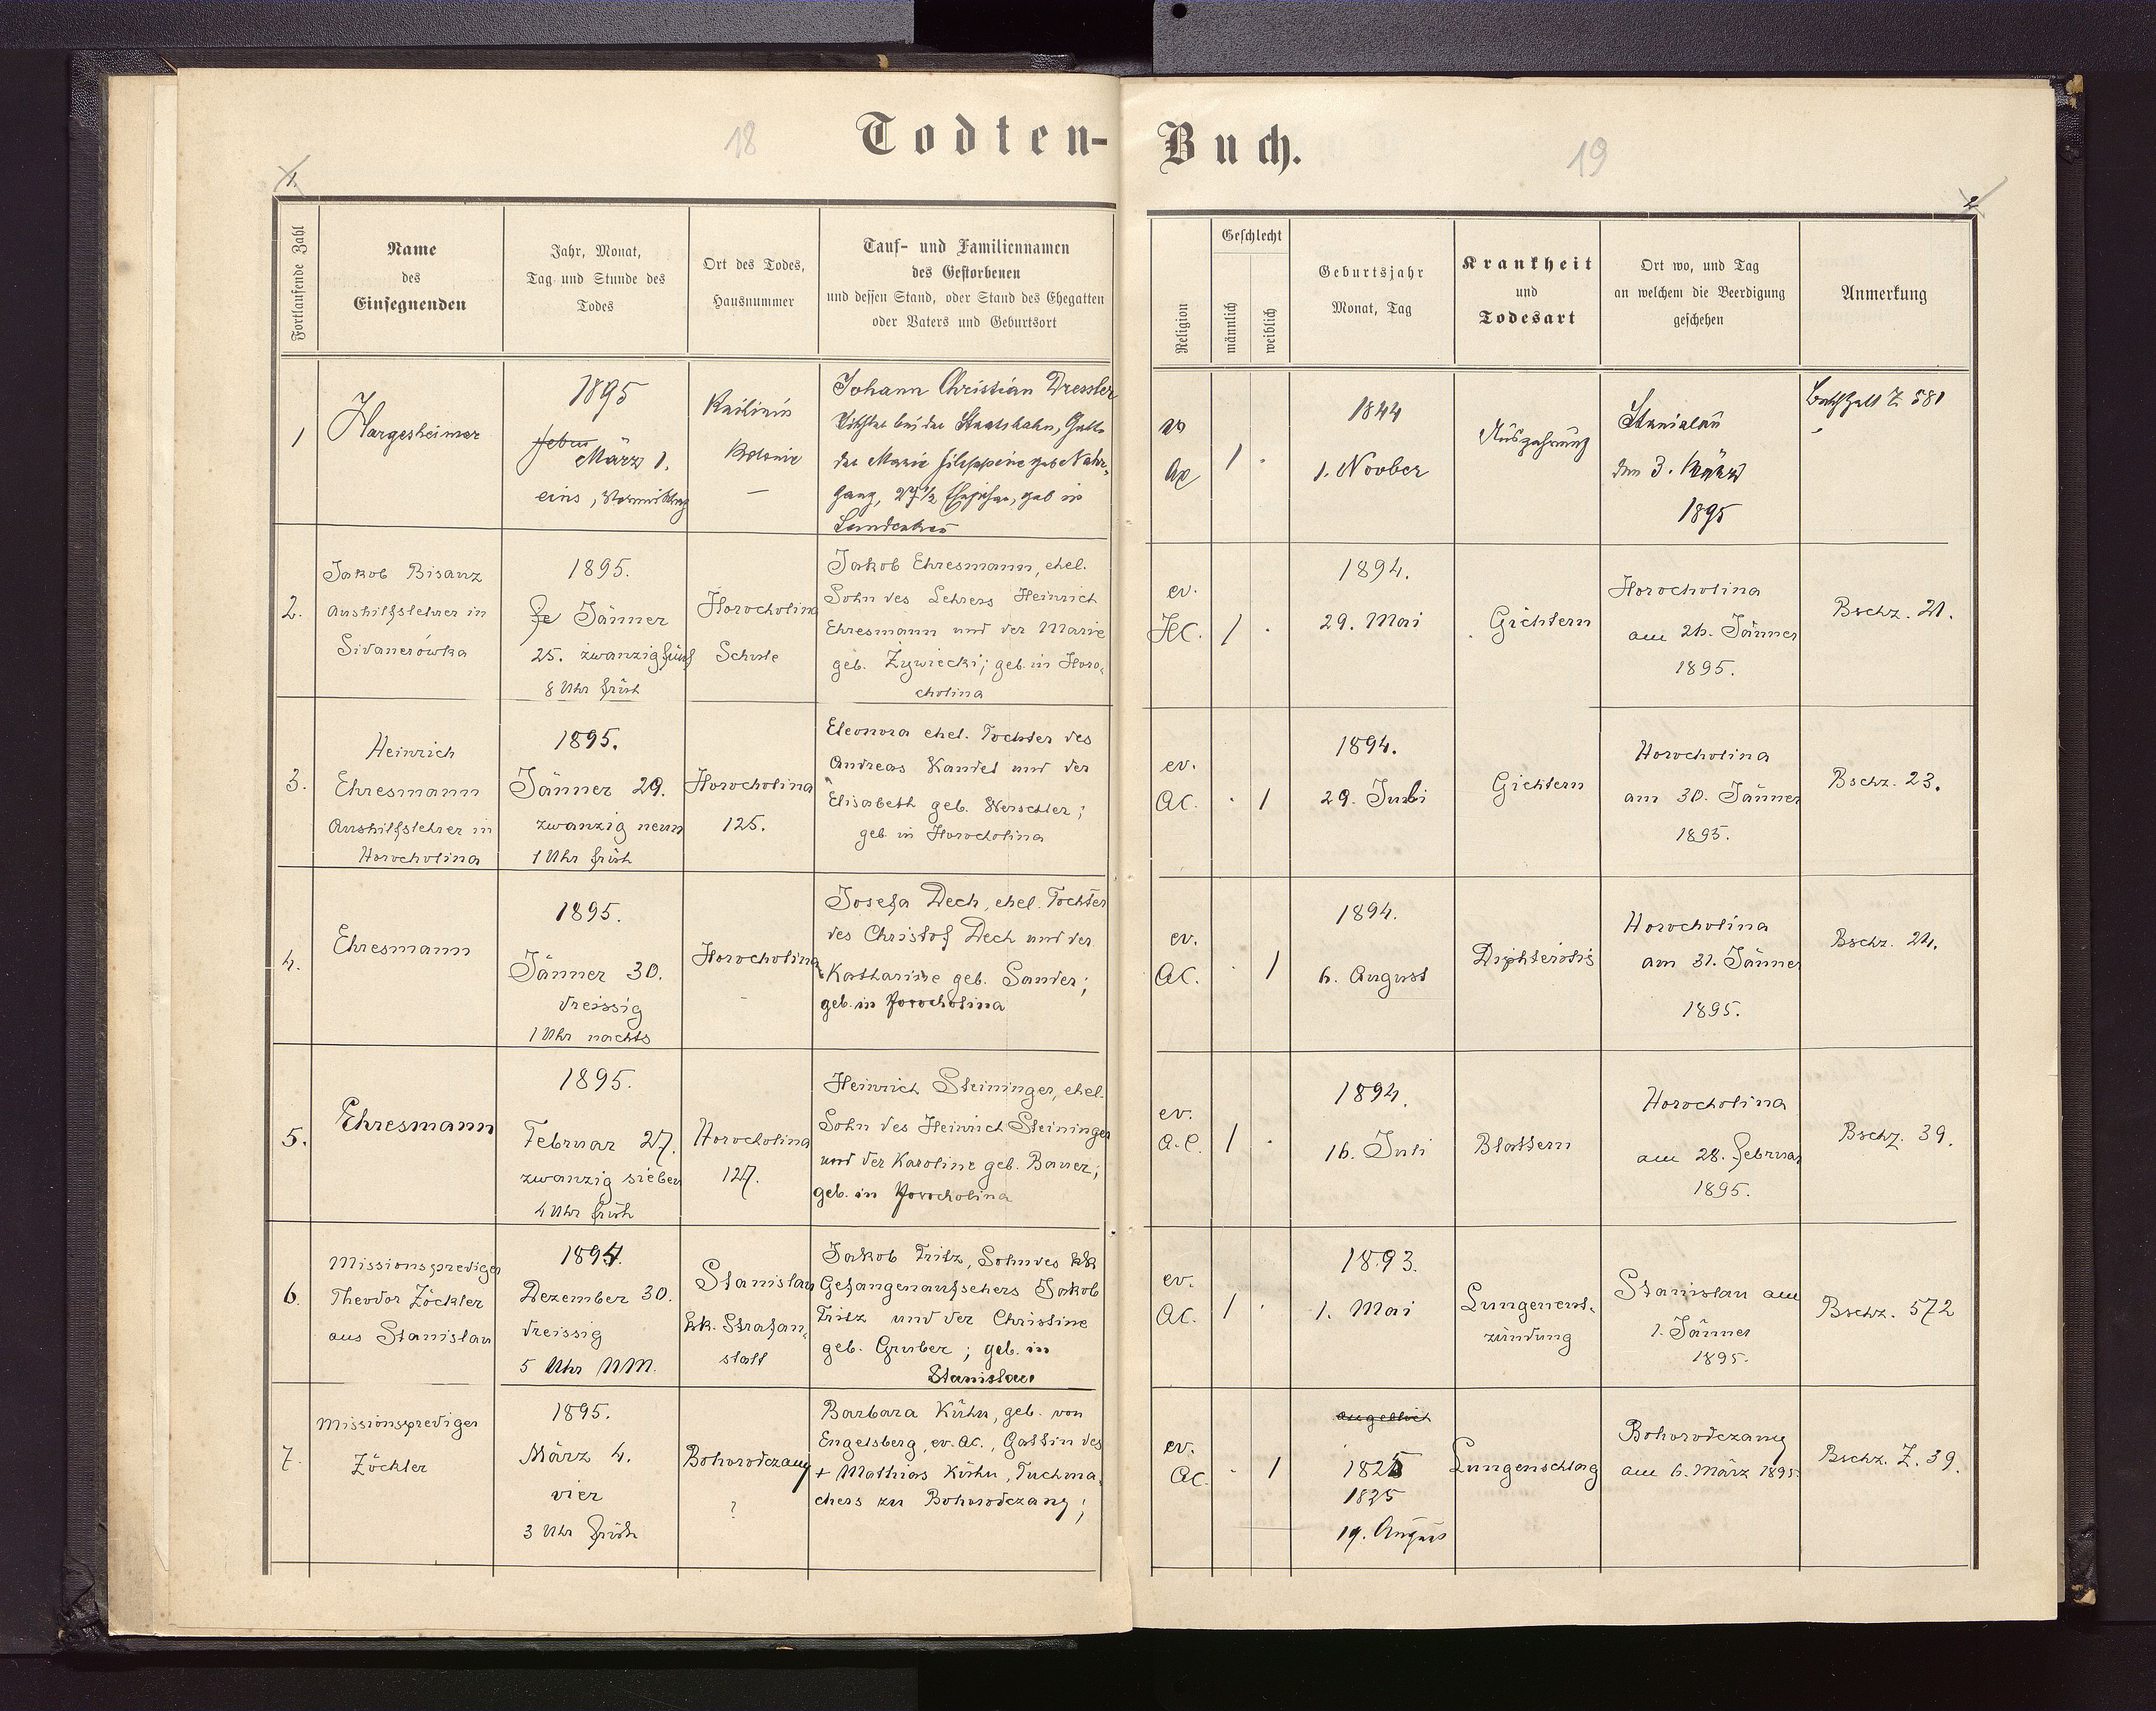 18
Todten-
Buch.
19
1.
2
Fortlaufende Zahl
Name
des
Einsegnenden
Jahr, Monat,
Tag und Stunde des
Todes
Ort des Todes,
Hausnummer
Tauf- und Familiennamen
des Gestorbenen
und dessen Stand, oder Stand des Ehegatten
oder Vaters und Geburtsort
Religion
Geschlecht
männlich
weiblich
Geburtsjahr
Monat, Tag
Krankheit
und
Todesart
Ort wo, und Tag
an welchem die Beerdigung
geschehen
Anmerkung
1
Hargesheimer
1895
März 1.
eins, Vormittag
Kolonie
—
Johann Christian Dressler
bei der Staatsbahn, Gatte
der Marie Filippine geb. Nahr-
gang, 27 1/2 Ehejahre, geb in
Landestreu
1
1844
1. Novber
Auszehrung
Stanislau
den 3. März
1895
Z 581
2.
Jakob Bisanz
Aushilfslehrer in
Sivanerówka
1895.
Jänner
25. zwanzig fünf
8 Uhr früh
Horocholina
Schule
Jakob Ehresmann, ehel.
Sohn des Lehrers Heinrich
Ehresmann und der Marie
geb. Zywiecki; geb. in Horo-
cholina
ev.
HC.
1 .
1894.
29. Mai
Gichtern
Horocholina
am 26. Jänner
1895.
Bschz. 21.
3.
Heinrich
Ehresmann
Aushilfslehrer in
Horocholina
1895.
Jänner 29.
zwanzig neun
1 Uhr früh
Horocholina
125.
Eleonora ehel. Tochter des
Andreas Kandel und der
Elisabeth geb. Herschler;
geb. in Horocholina
ev.
AC.
. 1
1894.
29. Juli
Gichtern
Horocholina
am 30. Jänner
1895.
Bschz. 23.
4.
Ehresmann
1895.
Jänner 30.
dreissig
1 Uhr nachts
Horocholina
Josefa Dech, ehel. Tochter
des Christof Dech und der
Katharine geb. Sander;
geb. in Horocholina
ev.
AC.
. 1
1894.
6. August
Diphteritis
Horocholina
am 31. Jänner
1895.
Bschz. 24.
5.
Ehresmann
1895.
Februar 27.
zwanzig sieben
4 Uhr früh
Horocholina
127.
Heinrich Steininger, ehel.
Sohn des Heinrich Steininger
und der Karoline geb. Bauer;
geb. in Horocholina
ev.
A.C.
1 .
1894.
16. Juli
Blattern
Horocholina
am 28. Februar
1895.
Bschz. 39.
6.
Missionsprediger
Theodor Zöckler
aus Stanislau
1894.
Dezember 30.
dreissig
5 Uhr NM.
Stanislau
kk. Strafan-
stalt
Jakob Fritz, Sohn des kk
Gefangenaufsehers Jakob
Fritz und der Christine
geb. Gruber; geb. in
Stanislau
ev.
AC.
1 .
1893.
1. Mai
Lungenent-
zündung
Stanislau am
1. Jänner
1895.
Bschz. 572
7.
Missionsprediger
Zöckler
1895.
März 4.
vier
3 Uhr früh
Bohorodczany
?
Barbara Kühn, geb. von
Engelsberg, ev. AC., Gattin des
+ Mathias Kühn, Tuchma-
chers zu Bohorodczany;
ev.
AC.
. 1
angeblich
1825
1825
19. August
Lungenschlag
Bohorodczany
am 6. März 1895.
Bschz. Z. 39.